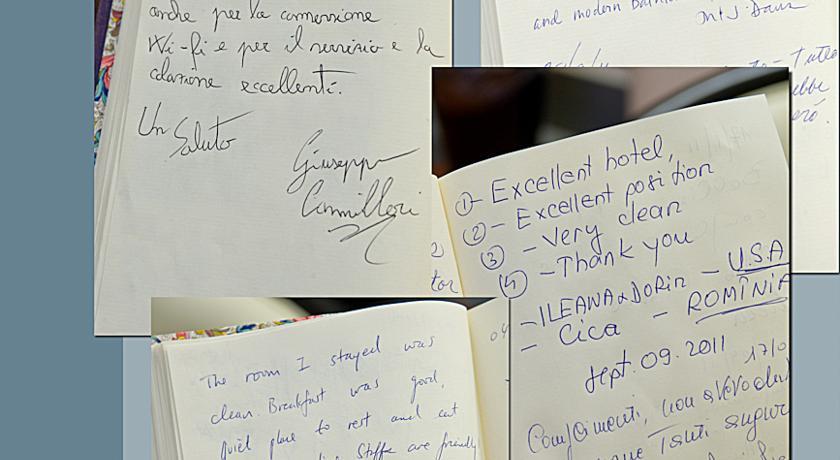 anche per la connessione
Wi-fi e per il servizio e la
colazione eccellenti.
Un
Saluto
Giuseppe
Camilleri
and modern
Tutto
① - Excellent hotel,
② - Excellent position
③ - Very clean
④ - Thank you
- ILEANA & DORIN - U.S.A
- Cica - ROMÎNIA
Sept. 09. 2011
17/0
Complimenti, non
The room I stayed was
clean. Breakfast was good,
Quiet place to rest and eat
Staffs are friendly